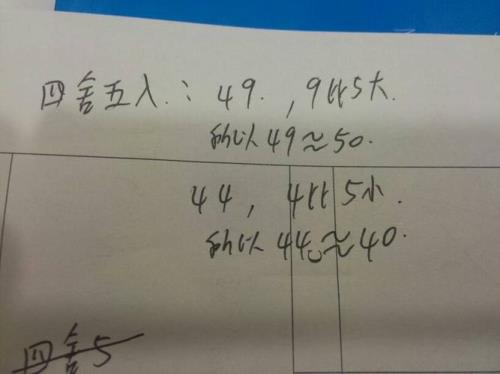 四舍五入：49.，9比5大.
所以49≈50.
44，4比5小.
所以44≈40.
四舍5